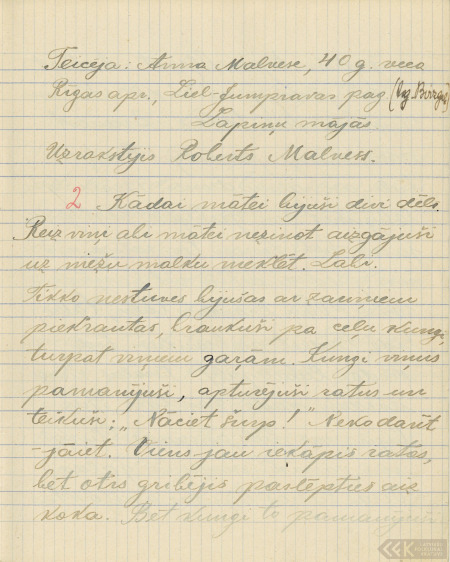 Teicēja: Anna Malvese, 40 g. veca
Rīgas apr., Liel-Jumpravas pag.
Lapiņu mājās
Uzrakstījis Roberts Malvess.
2 Kādai mātei bijuši divi dēli.
Reiz viņi abi mātei nezinot aizgājuši
uz mežu malku meklēt. Labi.
Tikko nestuves bijušas ar zariņiem
piekrautas, braukuši pa ceļu kungi,
turpat viņiem garām. Kungi viņus
pamanījuši, apturējuši ratus un
teikuši: „Nāciet šurp!" Neko darīt
-jāiet. Viens jau iekāpis ratos,
bet otrs gribējis paslēpties aiz
koka. Bet kungi to pamanījuši